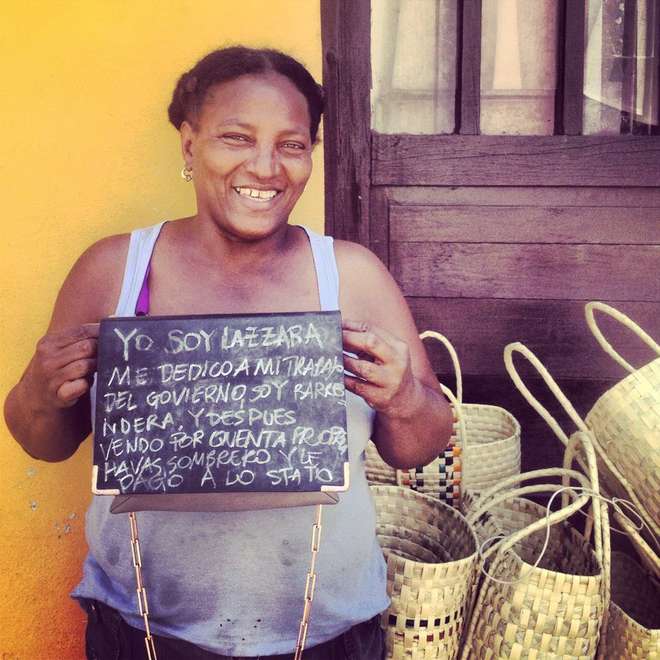 YO SOY LAZZARA
ME DEDICO A MI TRABAJO
DEL GOVIERNO, SOY BARRE
NDERA, Y DESPUES
VENDO POR QUENTA PROPIO
HAVAS, SOMBRERO Y LE
PAGO A LO STATO